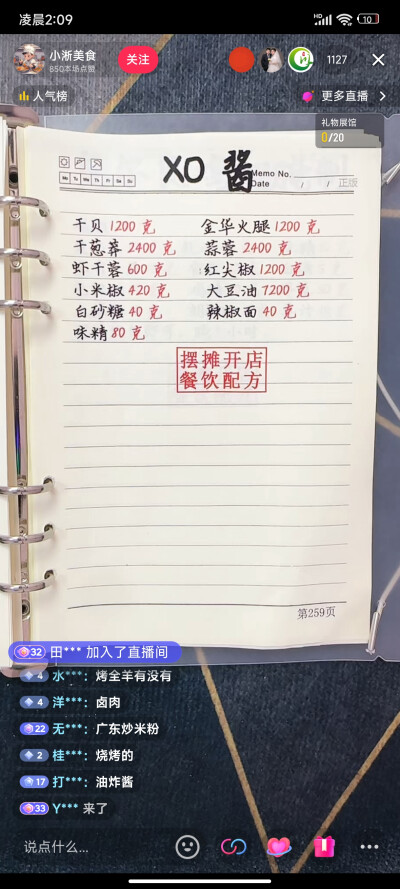 凌晨2:09
HD
10
小淅美食
850本场点赞
关注
1127
人气榜
更多直播
礼物展馆
0/20
XO 酱
Memo No.
Mo Tu We Th Fr Sa Su
Date / / 正版
干贝 1200 克 金华火腿 1200 克
干葱莽 2400 克 蒜蓉 2400 克
虾干蓉 600 克 红尖椒 1200 克
小米椒 420 克 大豆油 7200 克
白砂糖 40 克 辣椒面 40 克
味精 80 克
摆摊开店
餐饮配方
第259页
32 田*** 加入了直播间
4 水***: 烤全羊有没有
4 洋***: 卤肉
22 无***: 广东炒米粉
2 桂***: 烧烤的
17 打***: 油炸酱
33 Y*** 来了
说点什么...